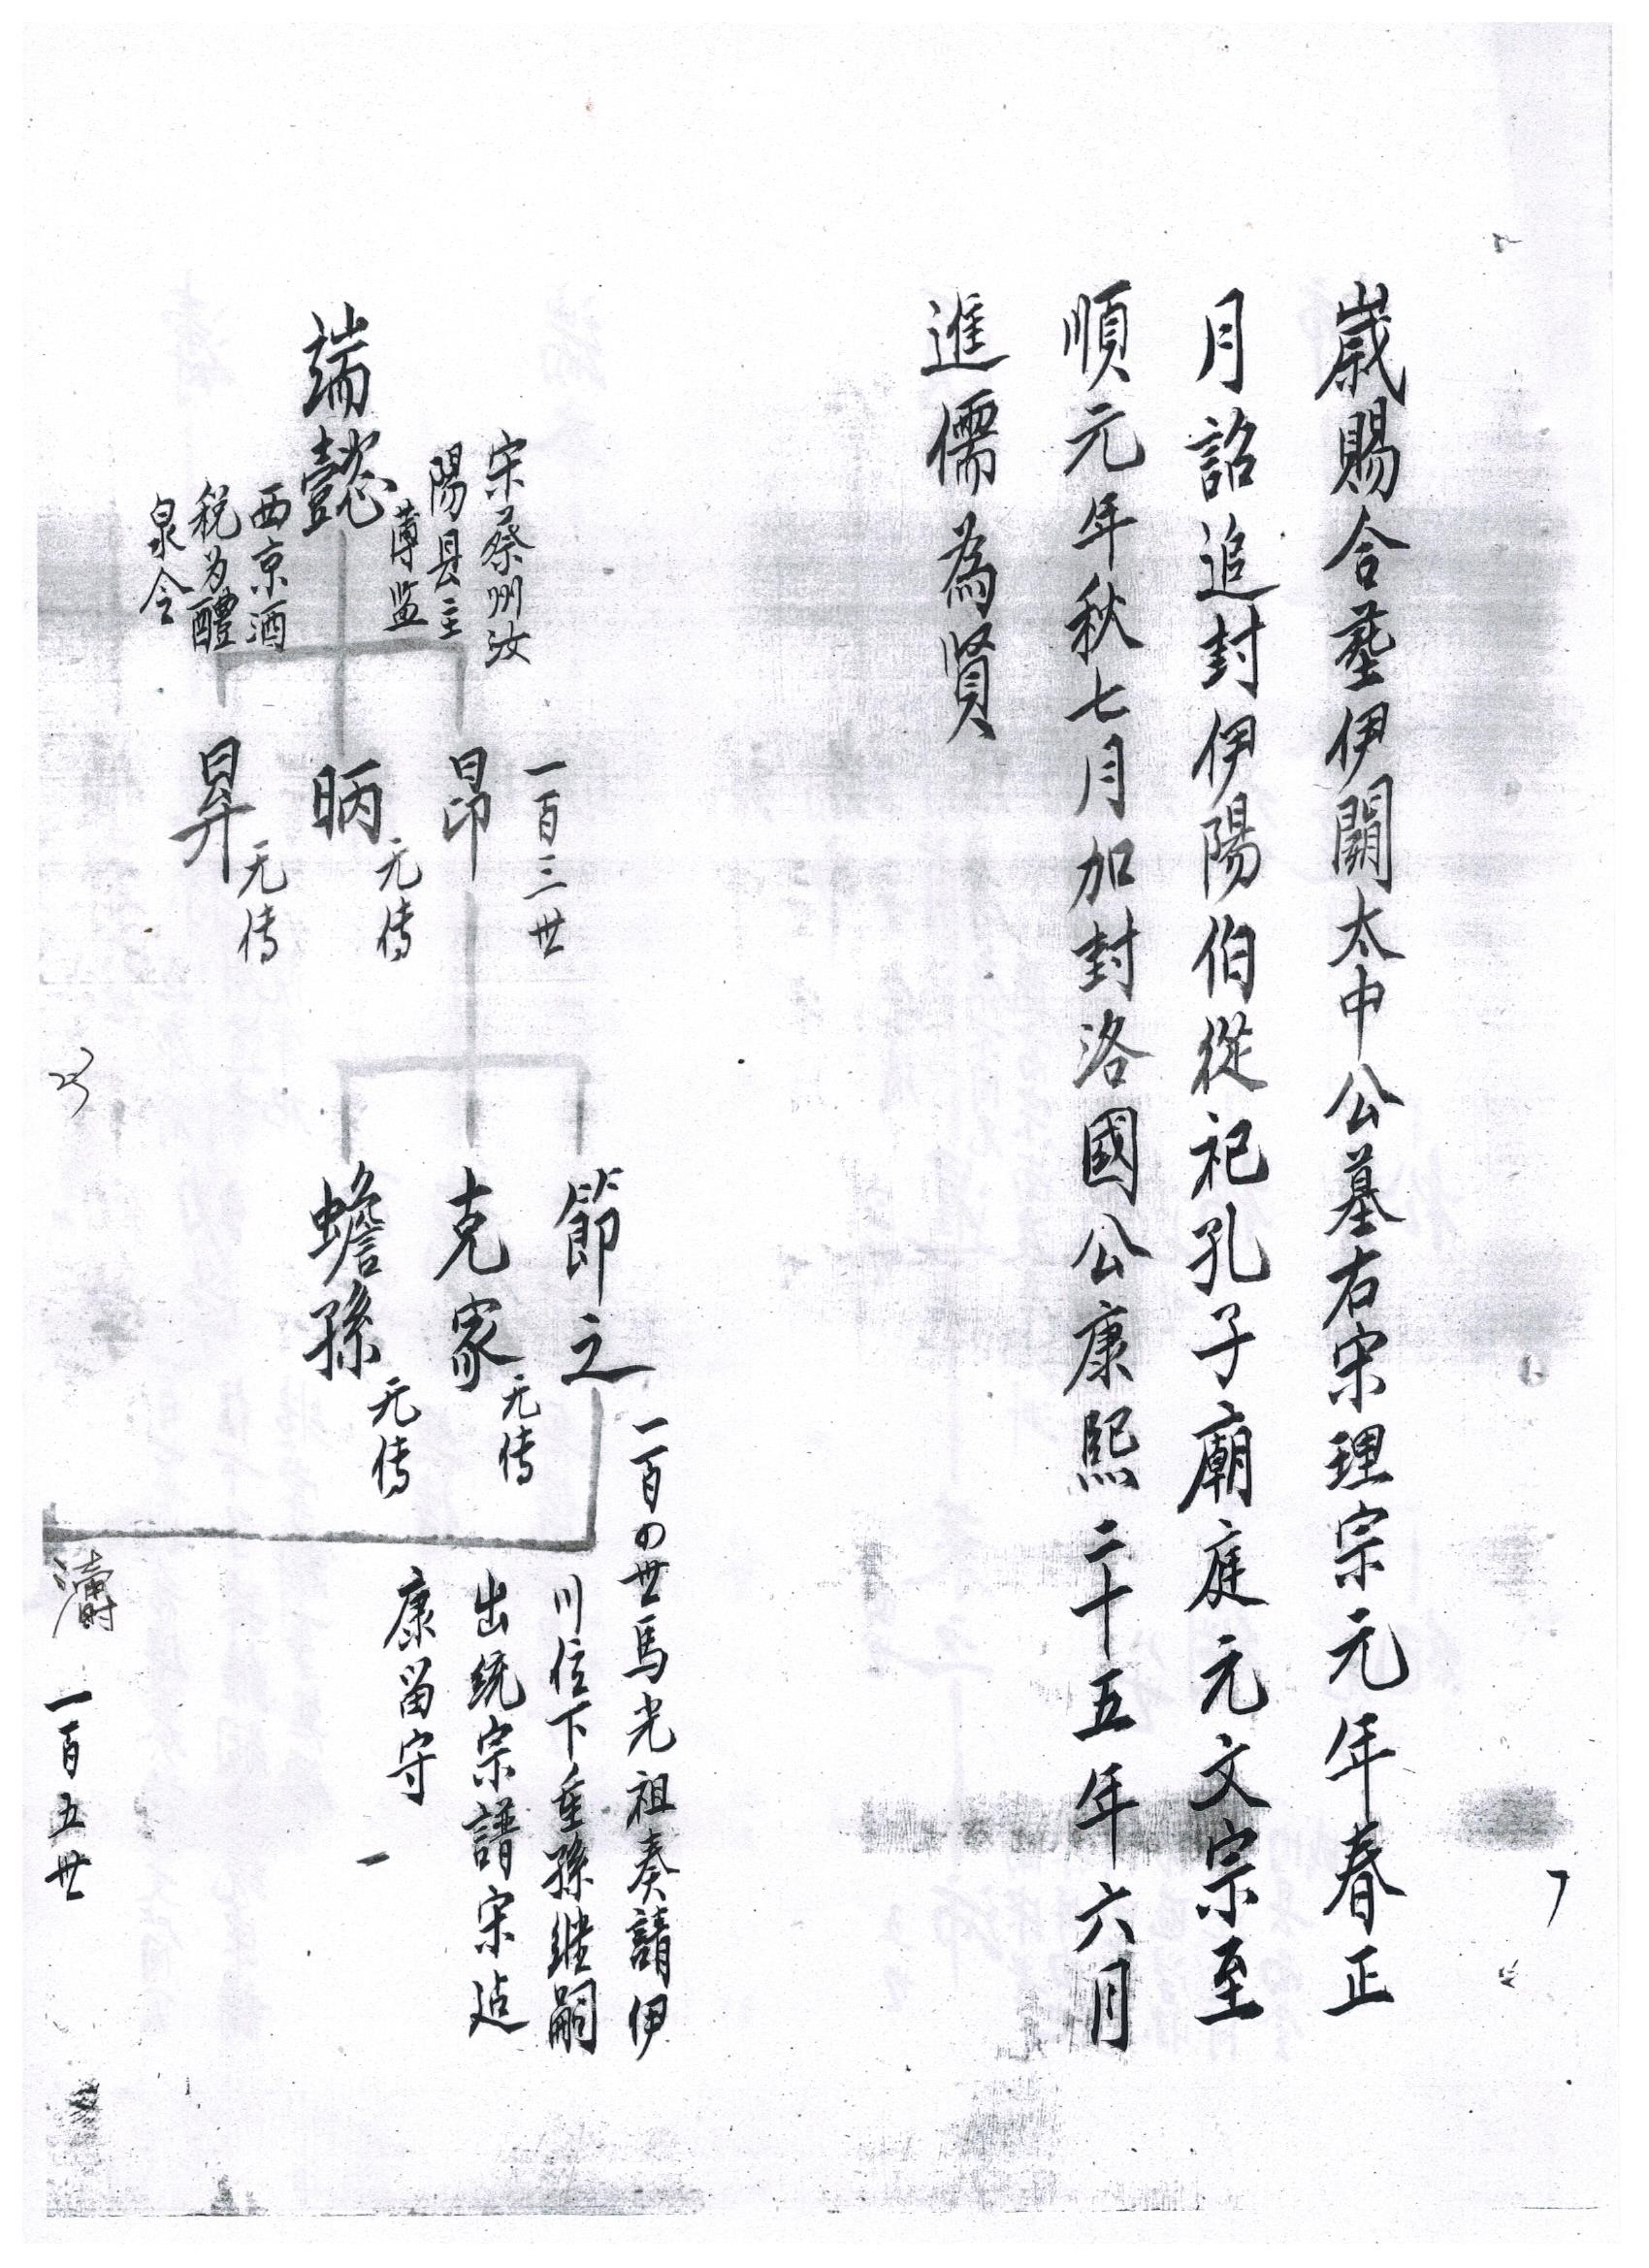 歲賜合塟伊闕太中公墓右宋理宗元年春正
月詔追封伊陽伯從祀孔子廟庭元文宗至
順元年秋七月加封洛國公康熙二十五年六月
進儒為賢
宋蔡州汝
陽县主
薄监
端懿
西京酒
税为醴
泉令
一百三世
昂
昞
无传
昇
无传
節之
克家
无传
蟾孫
无传
一百の世馬光祖奏請伊
川位下奎孫继嗣
出统宗譜宋
康留守
一百五世